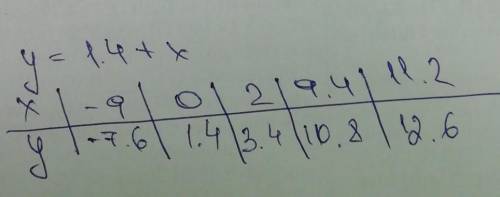 y = 1.4 + x
x | -9 | 0 | 2 | 9.4 | 11.2
y | -7.6 | 1.4 | 3.4 | 10.8 | 12.6